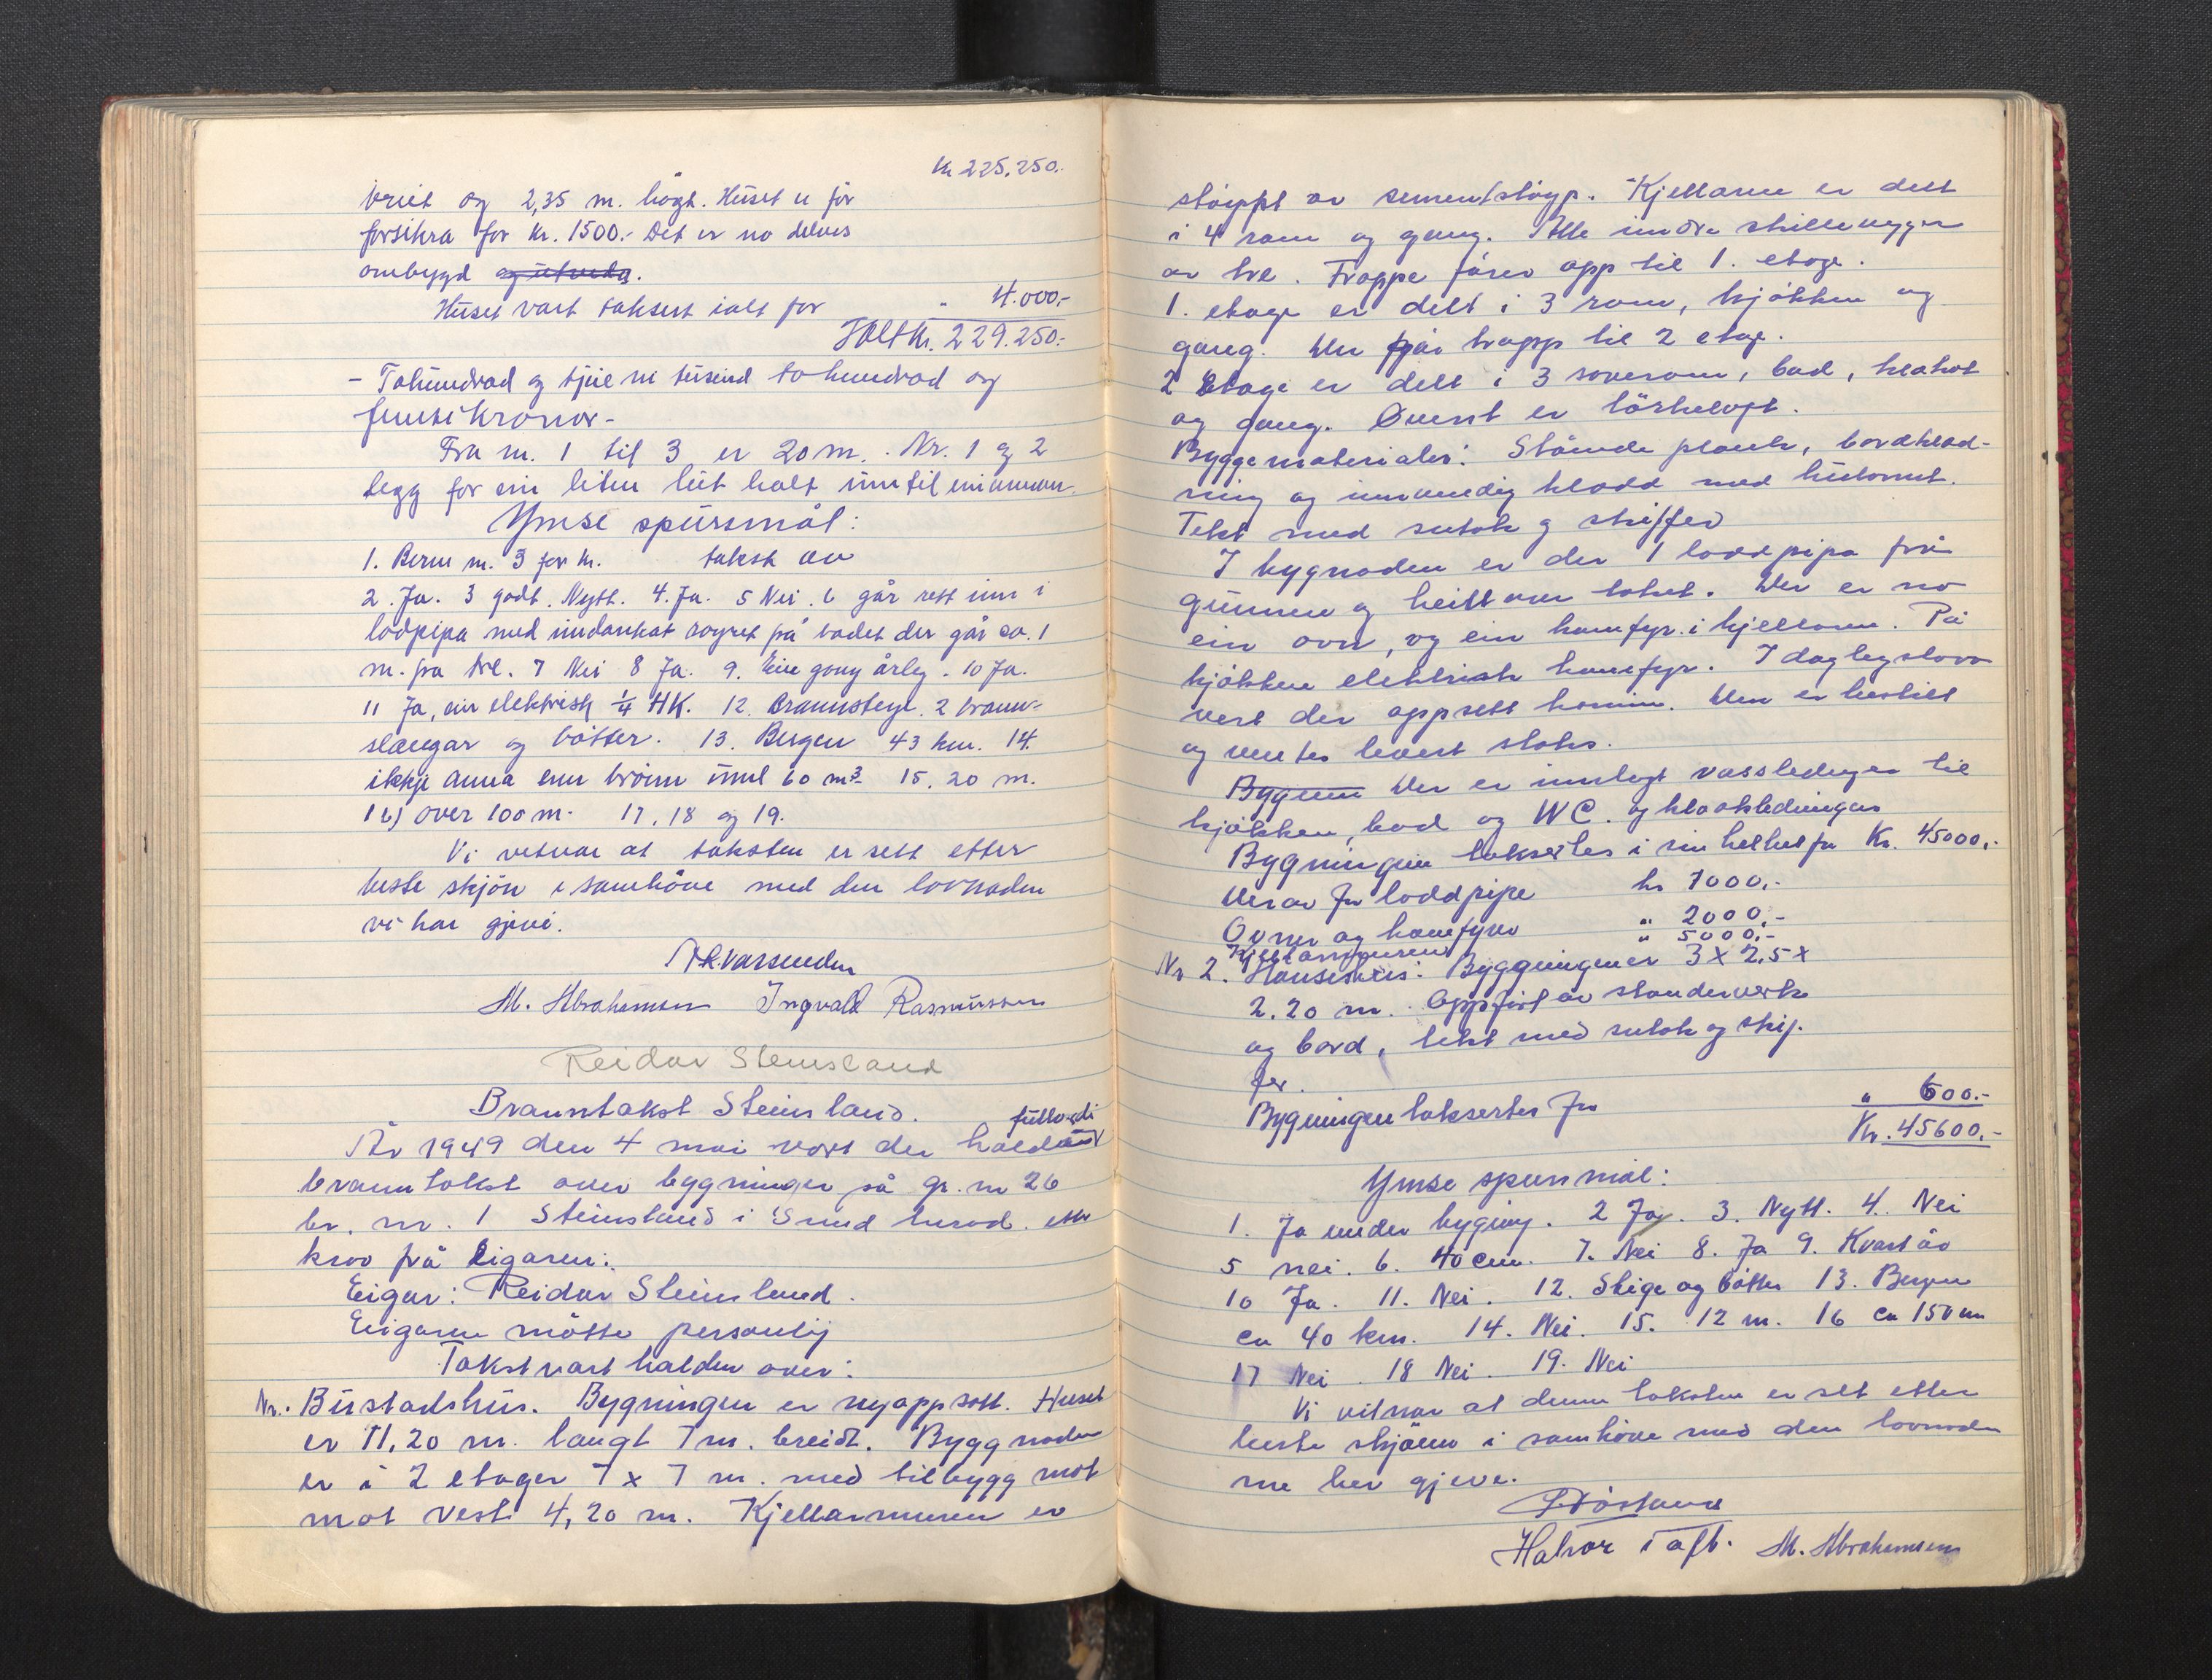 Kr 225.250.-
breit og 2,35 m. høgt. Huset er før
forsikra for kr. 1500.- Det er no delvis
ombygd og utvida.
Huset vart taksert ialt for " 4.000,-
Ialt kr. 229.250.-
- Tohundrad og tjue ni tusend tohundrad og
femti kronor -
Fra nr. 1 til 3 er 20 m. Nr. 1 og 2
ligg for ein liten lut halt inn til einannan.
Ymse spursmål:
1. Berre nr. 3 for kr. takst av
2. Ja. 3 godt. Nytt. 4. Ja. 5 Nei. 6 går rett inn i
lodpipa med undantak røyret på badet der går ca. 1
m. fra tre. 7 Nei 8 Ja. 9. Ein gong årleg. 10 Ja.
11 Ja, ein elektrisk 1/4 HK. 12. Brannstege. 2 brann-
slangar og bøtter. 13. Bergen 43 km. 14.
ikkje anna enn brønn 60 m³ 15. 20 m.
16) over 100 m. 17, 18 og 19.
Vi vitnar at taksten er sett etter
beste skjøn i samhøve med den lovnaden
vi har gjevi.
M. Abrahamsen Ingvald Rasmussen
Reidar Steinsland
Branntakst Steinsland.
År 1949 den 4 mai vart der halden fullverdi
branntakst over bygninger på gr. nr 26
br. nr. 1 Steinsland i Sund herad. etter
krav frå eigaren:
Eigar: Reidar Steinsland.
Eigaren møtte personlig
Takst vart halden over:
Nr. Bustadshus. Bygningen er nyoppsatt. Huset
er 11,20 m. langt 7 m. breidt. Byggnaden
er i 2 etager 7 x 7 m. med tilbygg mot
mot vest 4,20 m. Kjellarmuren er
støypt av sementstøyp. Kjellaren er delt
i 4 rom og gang. Alle indre skillevegger
av tre. Trappe fører opp til 1. etage.
1. etage er delt i 3 rom, kjøkken og
gang. Der går trapp til 2 etage.
2 Etage er delt i 3 soverom, bad, kleskot
og gang. Øverst er tørkeloft.
Byggematerialer: Stånde plank, bordkled-
ning og innvendig kledd med hulsonit.
Tekt med sutak og skiffer
I bygnaden er der 1 loddpipa frå
grunnen og heilt over taket. Der er no
ein ovn, og ein komfyr i kjellaren. På
kjøkken elektrisk komfyr. I daglegstova
vert der oppsett kamin. Den er bestilt
og ventes levert straks.
Bygnin Der er innlagt vassledinger til
kjøkken, bad og WC. og kloakledningar
Bygningen takseres i sin helhet for Kr. 45000,-
Derav for loddpipe kr 1000.-
Ovner og komfyrer " 2000,-
Kjellarmuren " 5000,-
Nr 2. Hønsehus: Byggningen er 3 x 2,5 x
2.20 m. Oppført av standerverk
og bord, tekt med sutak og skif-
fer.
Bygningen takseres for " 600.-
Kr. 45600,-
Ymse spursmål:
1. Ja under bygning. 2 Ja. 3. Nytt. 4. Nei
5 nei. 6. 40 cm. 7. Nei 8. Ja 9. Kvart år
10 Ja. 11. Nei. 12. Stige og bøtter 13. Bergen
ca 40 km. 14. Nei. 15. 12 m. 16 ca 150 m
17 Nei. 18 Nei. 19. Nei
Vi vitnar at denne taksten er sett etter
beste skjønn i samhøve med den lovnaden
me her gjeve.
Halvor Toft. M. Abrahamsen